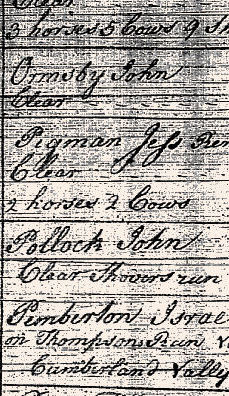 Clear
3 horses 5 Cows 9 Sh
Ormsby John
Clear
Pigman Jess Ren
Clear
2 horses 2 Cows
Pollock John
Clear Shovers run
Pemberton Israe
on Thompsons Run V
Cumberland Valley